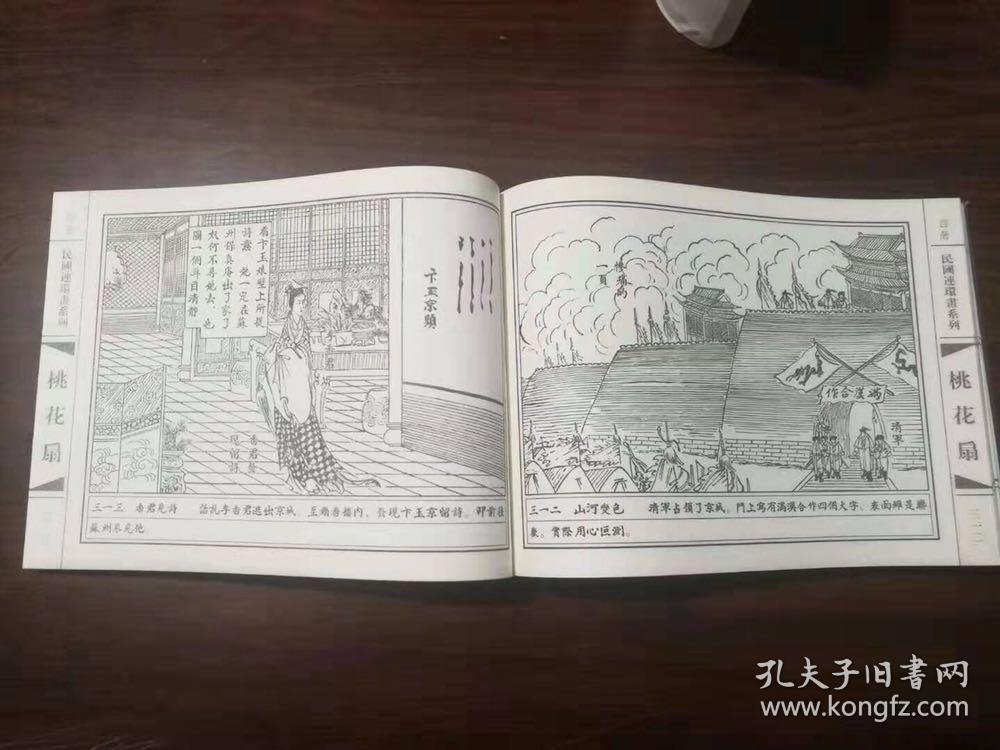 民國連環畫系列
桃花扇
滿漢合作
清軍
三一二 山河变色 清軍占領了京城。門上寫有滿漢合作四個大字，表面雖是聯
歡。實際用心叵測。
三一二
看卞玉娘壁上所提
詩露 她一定在蘇
州保真庵出了家了
奴何不尋她去、也
圖一個耳目清靜
卞玉京題
香君發
現留詩
三一三 香君見詩 話說李香君逃出京城，至賴香樓內。發現京玉卞留詩。即前往
蘇州來見她
民國連環畫系列
桃花扇
孔夫子旧書网
www.kongfz.com